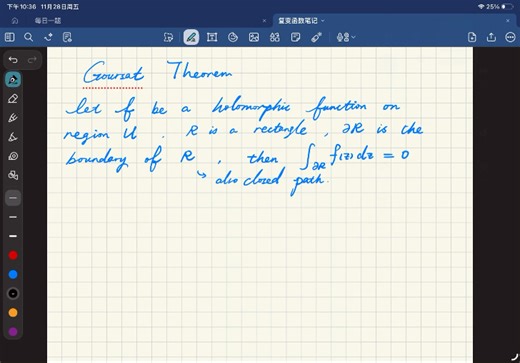 下午10:36 11月28日周五
25%
每日一题
复变函数笔记
Goursat Theorem
let f be a holomorphic function on
region U. R is a rectangle, ∂R is the
boundary of R, then ∫∂R f(z)dz = 0
↳ also closed path.